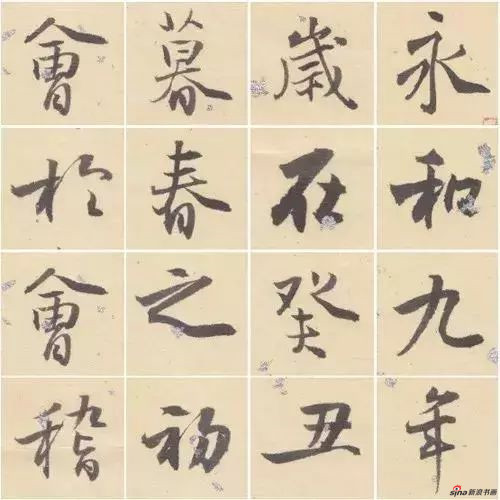 永和九年
歲在癸丑
暮春之初
會於會稽
sina新浪书画